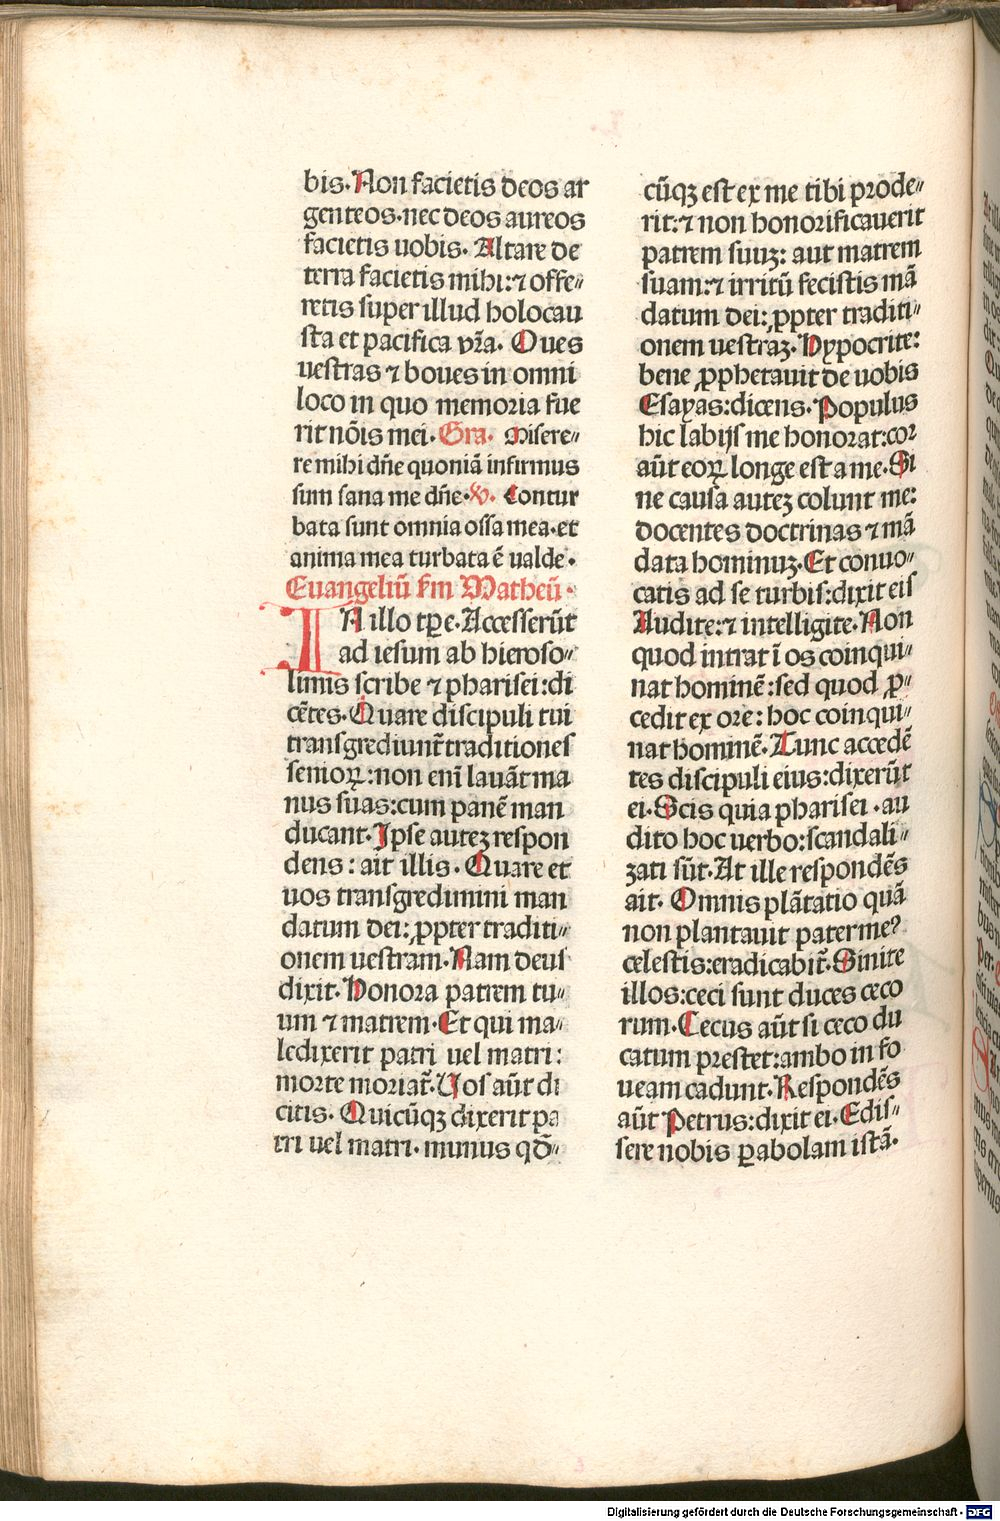 bis. Non facietis deos ar
genteos. nec deos aureos
facietis uobis. Altare de
terra facietis mihi: ⁊ offe„
retis super illud holocau
sta et pacifica vr̃a. Oues
uestras ⁊ boues in omni
loco in quo memoria fue
rit nõis mei. Gra. Misere„
re mihi dñe quoniã infirmus
sum sana me dñe. V. Contur
bata sunt omnia ossa mea. et
anima mea turbata ẽ ualde.
Euangeliũ ẜm Matheũ.
IN illo tꝑe. Accesserũt
ad iesum ab hieroso„
limis scribe ⁊ pharisei: di
cẽtes. Quare discipuli tui
transgrediunt̃ traditiones
senioꝝ: non enĩ lauãt ma
nus suas: cum panẽ man
ducant. Ipse autez respon
dens: ait illis. Quare et
uos transgredimini man
datum dei: ꝓpter traditi„
onem uestram. Nam deus
dixit. Honora patrem tu„
um ⁊ matrem. Et qui ma„
ledixerit patri uel matri:
morte moriat̃. Uos aũt di
citis. Quicũqꝫ dixerit pa
tri uel matri. munus qď„
cũqꝫ est ex me tibi prode„
rit: ⁊ non honorificauerit
patrem suuꝫ: aut matrem
suam: ⁊ irritũ fecistis mã
datum dei: ꝓpter traditi„
onem uestraꝫ. Hypocrite:
bene ꝓphetauit de uobis
Esayas: dicens. Populus
hic labijs me honorat: cor
aũt eoꝝ longe est a me. Si
ne causa autez colunt me:
docentes doctrinas ⁊ mã
data hominuꝫ. Et conuo„
catis ad se turbis: dixit eis
Audite: ⁊ intelligite. Non
quod intrat ĩ os coinqui„
nat hominẽ: sed quod ꝓ„
cedit ex ore: hoc coinqui„
nat hominẽ. Tunc accedẽ
tes discipuli eius: dixerũt
ei. Scis quia pharisei. au
dito hoc uerbo: scandali„
zati sũt. At ille respondẽs
ait. Omnis plãtatio quã
non plantauit pater me?
celestis: eradicabit̃. Sinite
illos: ceci sunt duces ceco
rum. Cecus aũt si ceco du
catum prestet: ambo in fo
ueam cadunt. Respondẽs
aũt Petrus: dixit ei. Edis„
sere nobis ꝑabolam istã.
Digitalisierung gefördert durch die Deutsche Forschungsgemeinschaft - DFG